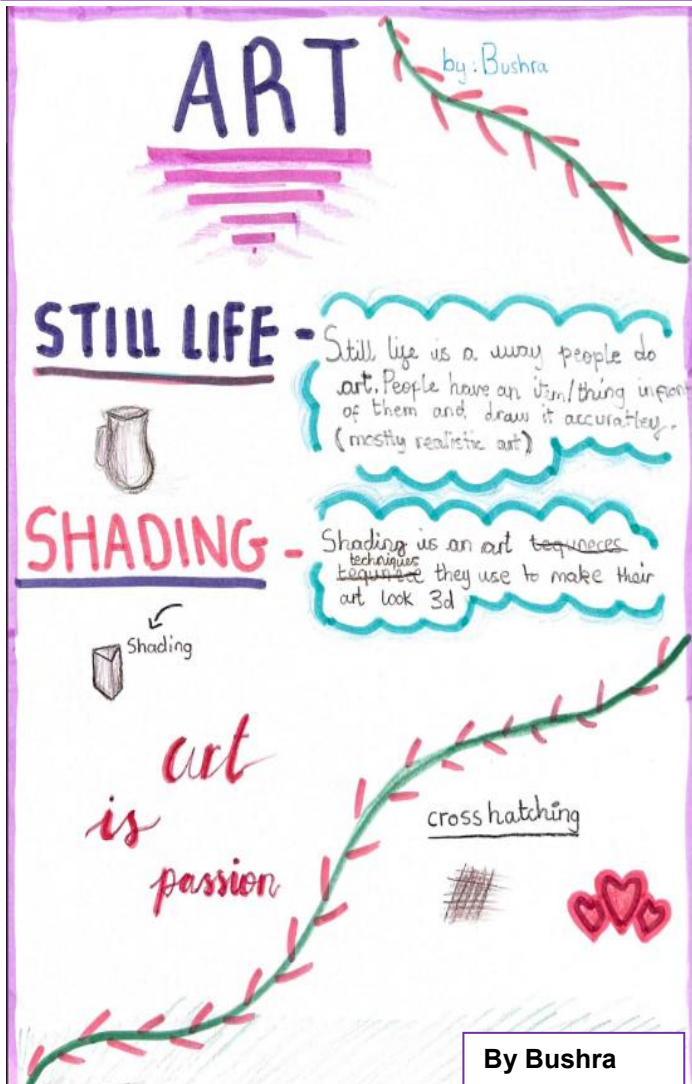 ART
by: Bushra
STILL LIFE -
Still life is a way people do
art. People have an item/thing infront
of them and draw it accuratley.
(mostly realistic art)
SHADING -
Shading is an art tequneces
techniques
tequnece they use to make their
art look 3d
Shading
art
is
passion
cross hatching
By Bushra